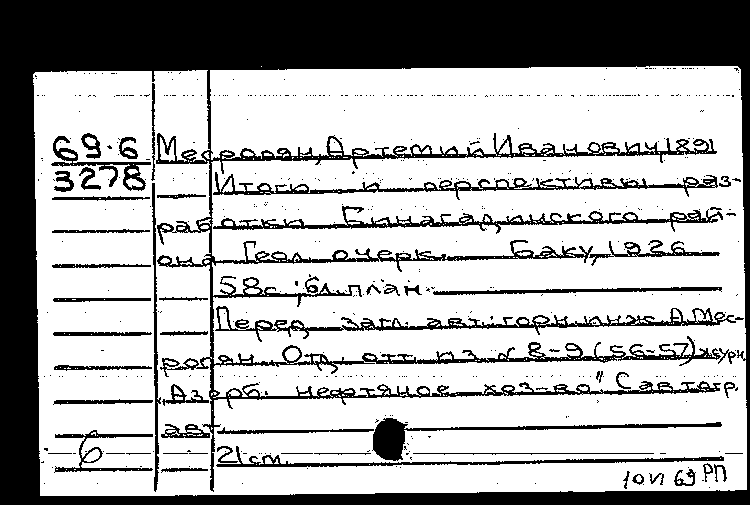 69.6 Месропян, Артемий Иванович, 1891
3278 Итоги и перспективы раз-
работки Бинагадинского рай-
она Геол. очерк. Баку, 1926
58с.; 6л. план.
Перед загл. авт.: горн. инж. А. Мес-
ропян. Отд. отт. из № 8-9 (56-57) журн.
„Азерб. нефтяное хоз-во" С автогр.
авт.
6 21 см.
10 и 69 РП